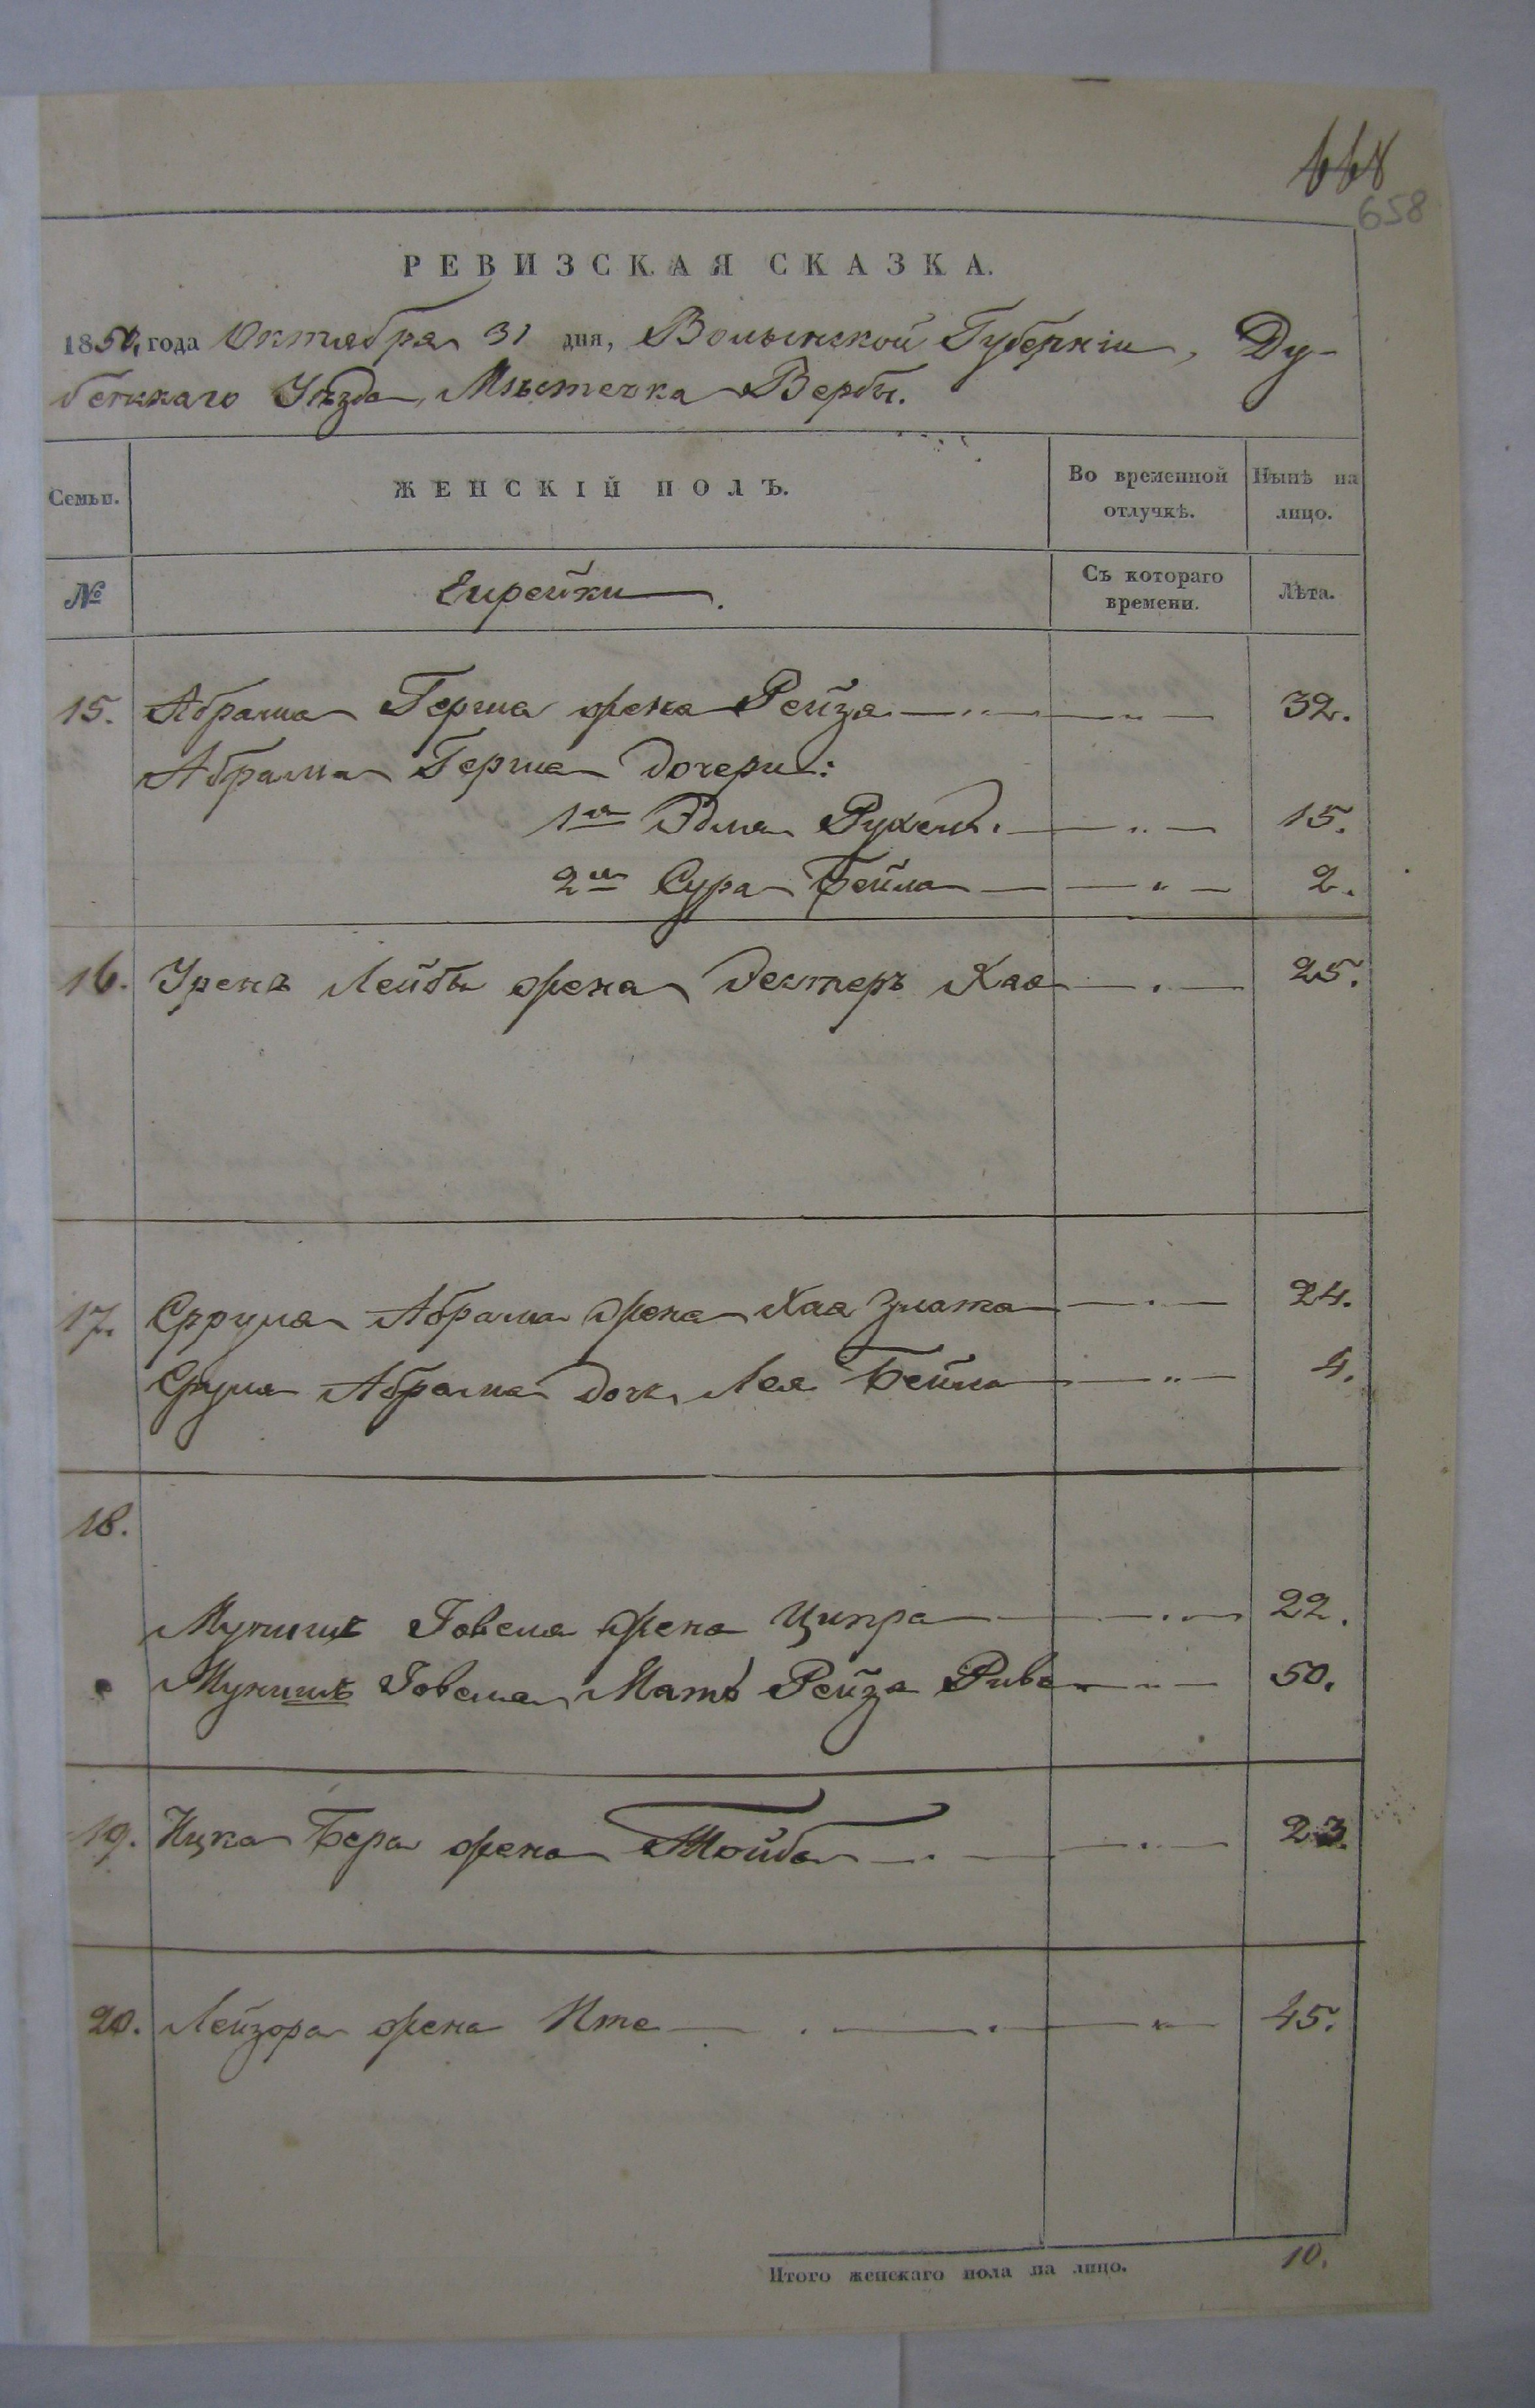 668
658
РЕВИЗСКАЯ СКАЗКА.
1850, года Октября 31 дня, Волынской Губерніи, Ду-
бенскаго Уѣзда, Мѣстечка Вербы.
Семьи. ЖЕНСКІЙ ПОЛЪ. Во временной отлучкѣ. Нынѣ на лицо.
№ Еврейки. Съ котораго времени. Лѣта.
15. Абрама Герша жена Рейза 32.
Абрама Герша дочери:
1я Рухель. 15.
2я Сура Бейла 2.
16. Лейбы жена Эстеръ Хая 25.
17. Сруля Абрама жена Хая Злата 24.
Сруля Абрама доч. Лея Бейла 4.
18.
Говеля жена Ципра 22.
Говеля Мать Рейза Рива 50.
19. Ицка Бера жена Тойба 23.
20. Лейзора жена Ите 45.
Итого женскаго пола на лицо. 10.